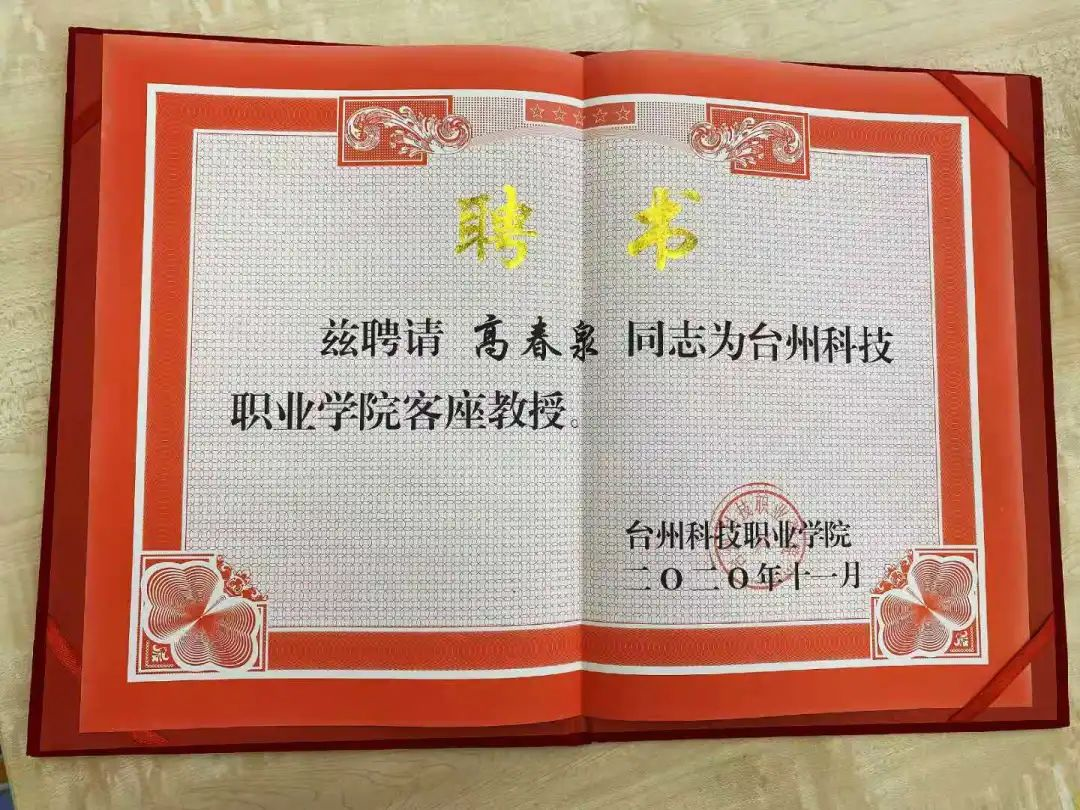 聘书
兹聘请 高春泉 同志为台州科技
职业学院客座教授。
台州科技职业学院
二〇二〇年十一月